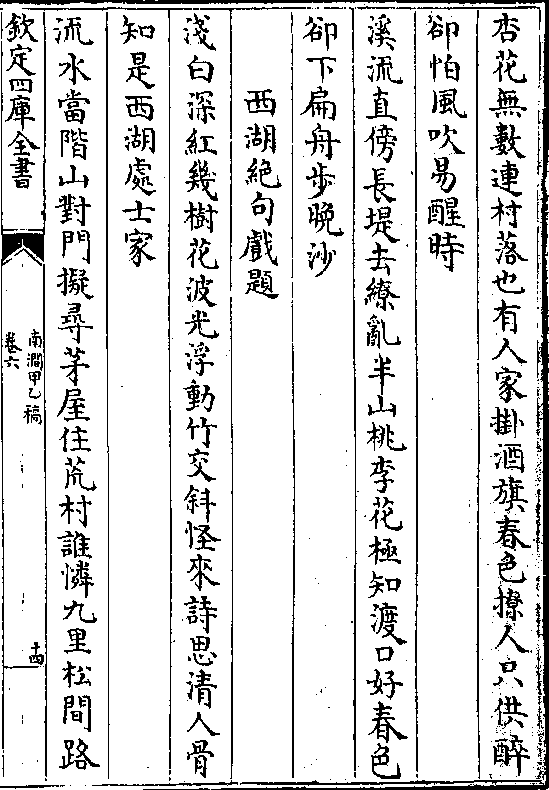 杏花無數連村落也有人家掛酒旗春色撩人只供醉
卻怕風吹易醒時
溪流直傍長堤去繚亂半山桃李花極知渡口好春色
卻下扁舟步晚沙
西湖絶句戲題
淺白深紅幾樹花波光浮動竹交斜怪來詩思清人骨
知是西湖處士家
流水當階山對門擬尋茅屋住荒村誰憐九里松間路
欽定四庫全書
南澗甲乙稿
卷六
十四